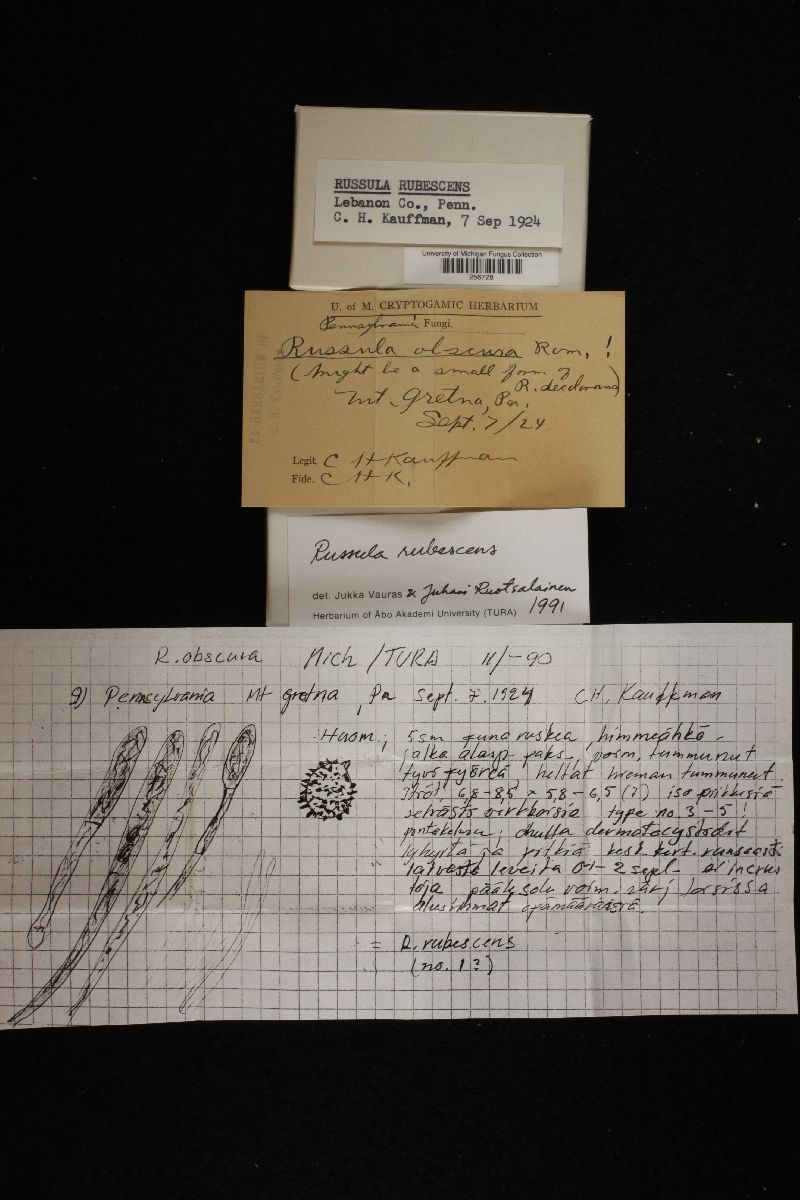 RUSSULA RUBESCENS
Lebanon Co., Penn.
C. H. Kauffman, 7 Sep 1924
University of Michigan Fungus Collection
256728
U. of M. CRYPTOGAMIC HERBARIUM
Pennsylvania Fungi.
Russula obscura Rom. !
(Might be a small form of
R. decolorans)
Mt. Gretna, Pa.
Sept. 7/24
Legit. C H Kauffman
Fide. C H K.
EX HERBARIUM OF
C. H. Kauffman
Russula rubescens
det. Jukka Vauras & Juhani Ruotsalainen
Herbarium of Åbo Akademi University (TURA) 1991
R. obscura Mich /TURA 11/-90
9) Pennsylvania Mt Gretna, Pa Sept. 7. 1924 CH. Kauffman
Huom; 5 sm punaruskea, himmeähkö,
jalka alasp. paks. voim. tummunut
tyvi pyöreä, heltat hieman tummuneet.
Itiöt 6,8-8,5 x 5,8-6,5 (7) iso piikkisiä
type no 3-5!
pintakelmu: dermatocystidit
lyhyitä ja pitkiä kesk. kert. runsaasti
leveitä 0-1-2 sept. ei incrus
toja voim. värj
epämääräisiä.
= R. rubescens
(no. 1?)